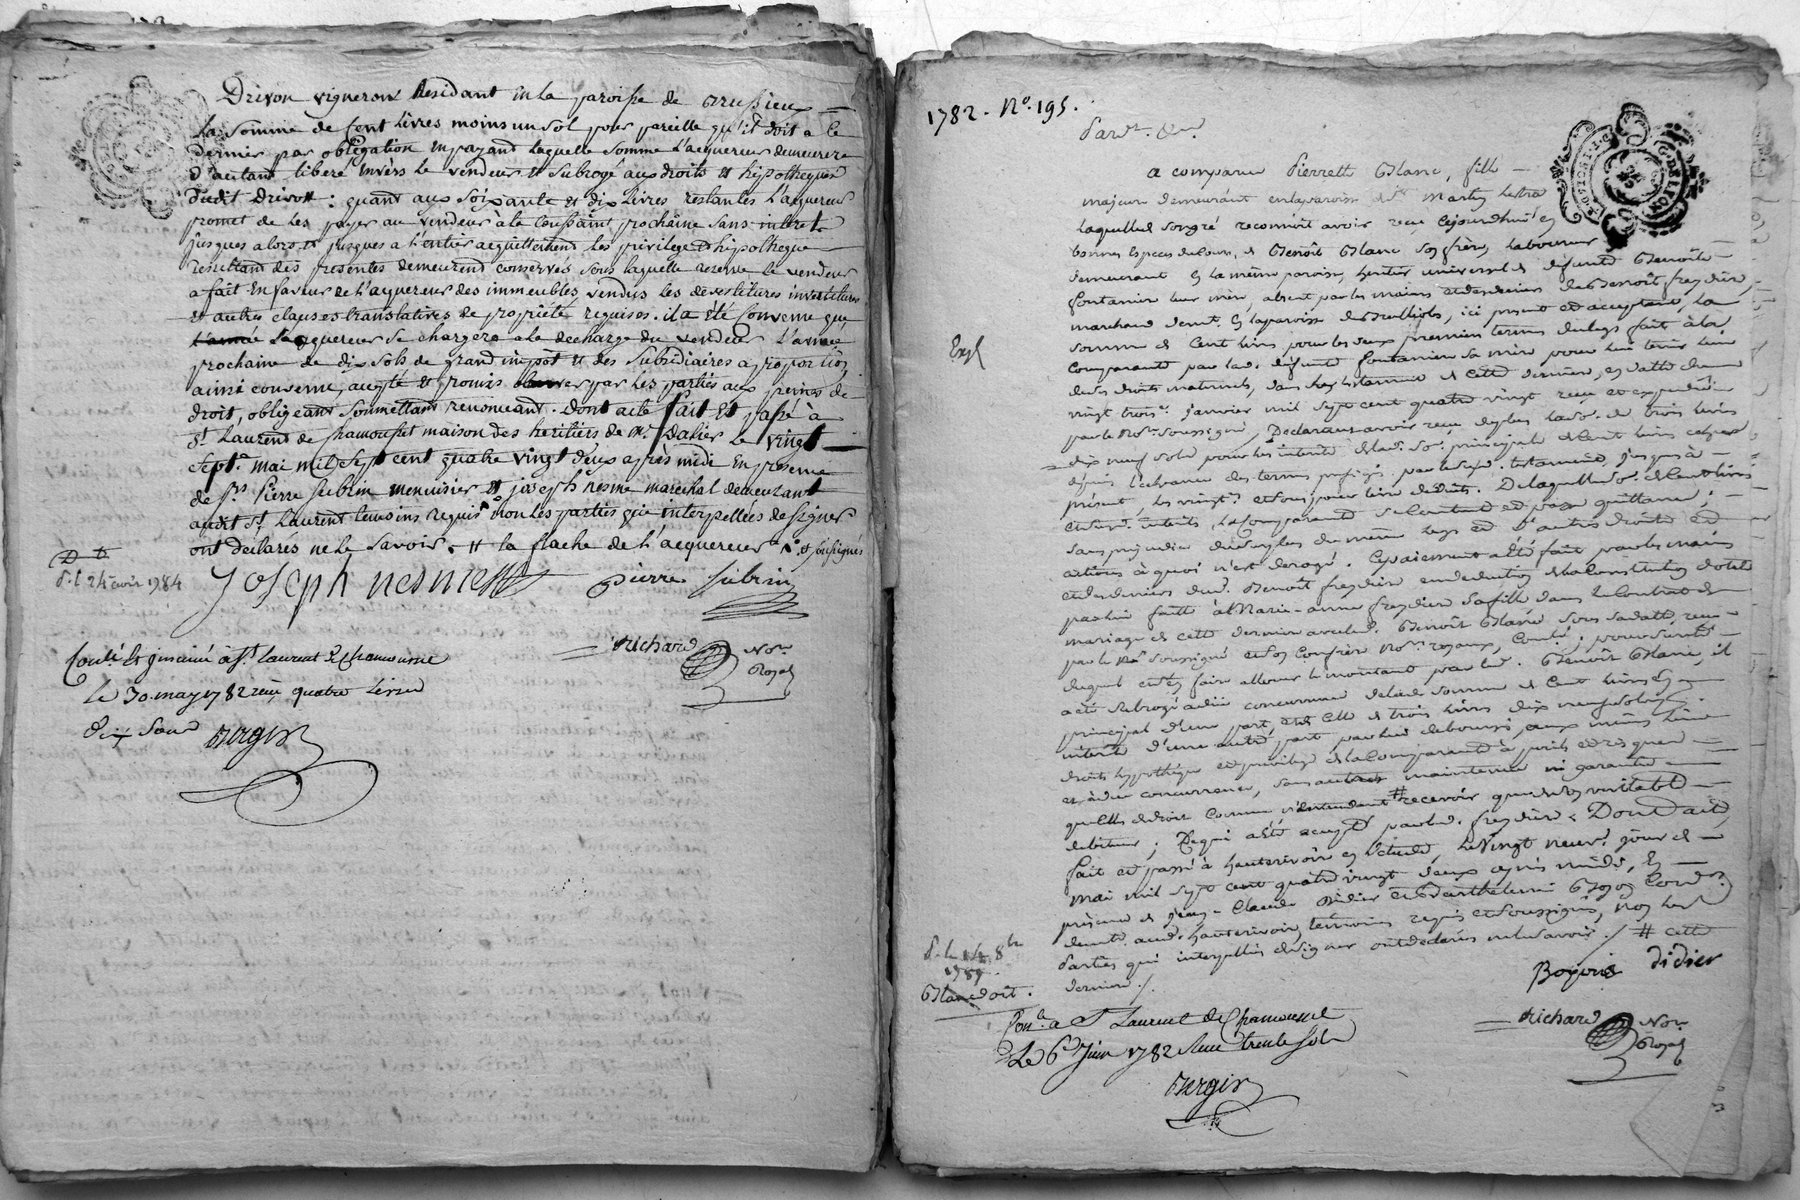 Drivon vigneron Residant en la paroisse de Brussieu
La somme de Cent Livres moins un sol pour pareille qu'il doit a ce
dernier par obligation en payant laquelle somme L'acquereur demeurera
d'autant liberé envèrs le vendeur et Subrogé aux droits et hipotheques
dudit Drivon : quant aux soixante et dix Livres restantes L'acquereur
promet de les payer au vendeur à la toussaint prochaine sans interet
jusques alors, et jusques a l'entier acquittement les privilege et hipotheque
resultant des presentes demeurent conservés sous laquelle reserve le vendeur
a fait En faveur de L'aquereur des immeubles vendus les devestitures investitures
et autres clauses translatives de propriété requises. il a été convenu que
L'aquereur se chargera a la decharge du vendeur L'année
prochaine de dix sols de grand impot et des subsidiaires a proportion
ainsi convenu, accepté et promis par les parties aux peines de
droit, obligeant soumettant renonceant. Dont acte fait et passé à
St. Laurent de Chamousset maison des heritiers de Mr. Dalier le vingt
sept.e mai mil sept cent quatre vingt deux après midi En presence
de Srs. Pierre Subrin menuisier et joseph nesme marechal demeurant
audit St. Laurent temoins requis non les parties qui interpellées de signer
ont déclarés ne le savoir. # la flache de l'acquereur soussignés
24 avril 1784
Joseph nesme Pierre Subrin
Richard Nore.
Royal
Conlé et insinué à St. laurent de Chamousset
le 30. may 1782 reçu quatre Livres
Dix Sous
Bergir
1782. No. 195.
Pardt. &a.
a comparu Pierrette Blanc, fille
majeure demeurant en la paroisse de St. Martin Lestra
Laquelle de son gré reconnoit avoir reçu cejourdhui en
bonnes especes de cours, de Benoît Blanc son frère, laboureur
demeurant en la même paroisse, heritier universel de defunte Benoîte
fontanier leur mère, absent par les mains et des deniers de Benoît freydière
marchand demt. en la paroisse de, ici present et acceptant, La
somme de Cent livres pour les deux premiers termes du legs fait à la
Comparante par lad. defunte fontanier sa mère pour lui tenir lieu
de ses droits maternels, dans le testament de cette derniere, en datte du
vingt trois. janvier mil sept cent quatre vingt reçu et expedié
par le Nore. soussigné, Declarant avoir reçu de plus la so. de trois livres
dix neuf sols pour les interets de lad. so. principale de Cent livres
depuis l'echeance des termes par le susd. testament jusques à
présent, De laquelle so. de Cent livres
et susd. interets, la Comparante se contente et passe quittance ;
sans prejudice du surplus du même legs et d'autres droits et
actions à quoi n'est derogé. Ce paiement a été fait par les mains
et des deniers dud. Benoît freydière en deduction de la Constitution dotale
par lui faitte à Marie-anne freydière sa fille dans le Contrat de
mariage de cette derniere avec led. Benoît Blanc sous sa datte, reçu
par le Nre. soussigné et son Confrère Nores. royaux, Conlé ; pour sureté
duquel et en faire allouer le montant par led. Benoît Blanc, il
a été subrogé à due concurrence de lad. somme de Cent livres en
principal d'une part, et de celle de trois livres dix neuf sols
interets d'une autre part par lui deboursés, aux mêmes lieu
droits hypothèque et privilege de la Comparante à perils et risques
et à due concurrence, sans autre maintenue ni garantie
qu'elle de droit # recevoir que de son veritable
debiteur ; Ce qui a été accepté par led. freydière. Dont acte
fait et passé à hauterivoire en l'etude, le vingt neuf. jour de
mai mil sept cent quatre vingt deux après midi, En
présence de Jean-Claude Didier et Barthelemi Boyon Cordr.
demts. aud. hauterivoire, temoins requis et soussignés, Non les
Parties qui interpellées de signer ont declarés ne le savoir ./ # cette
derniere ./.
Expé
1789.
Blanc doit.
Boyon Didier
Richard Nore.
Royal
Conlé. a St Laurent de Chamousset
Le 6e Juin 1782 Reçu trente sols
Bergir